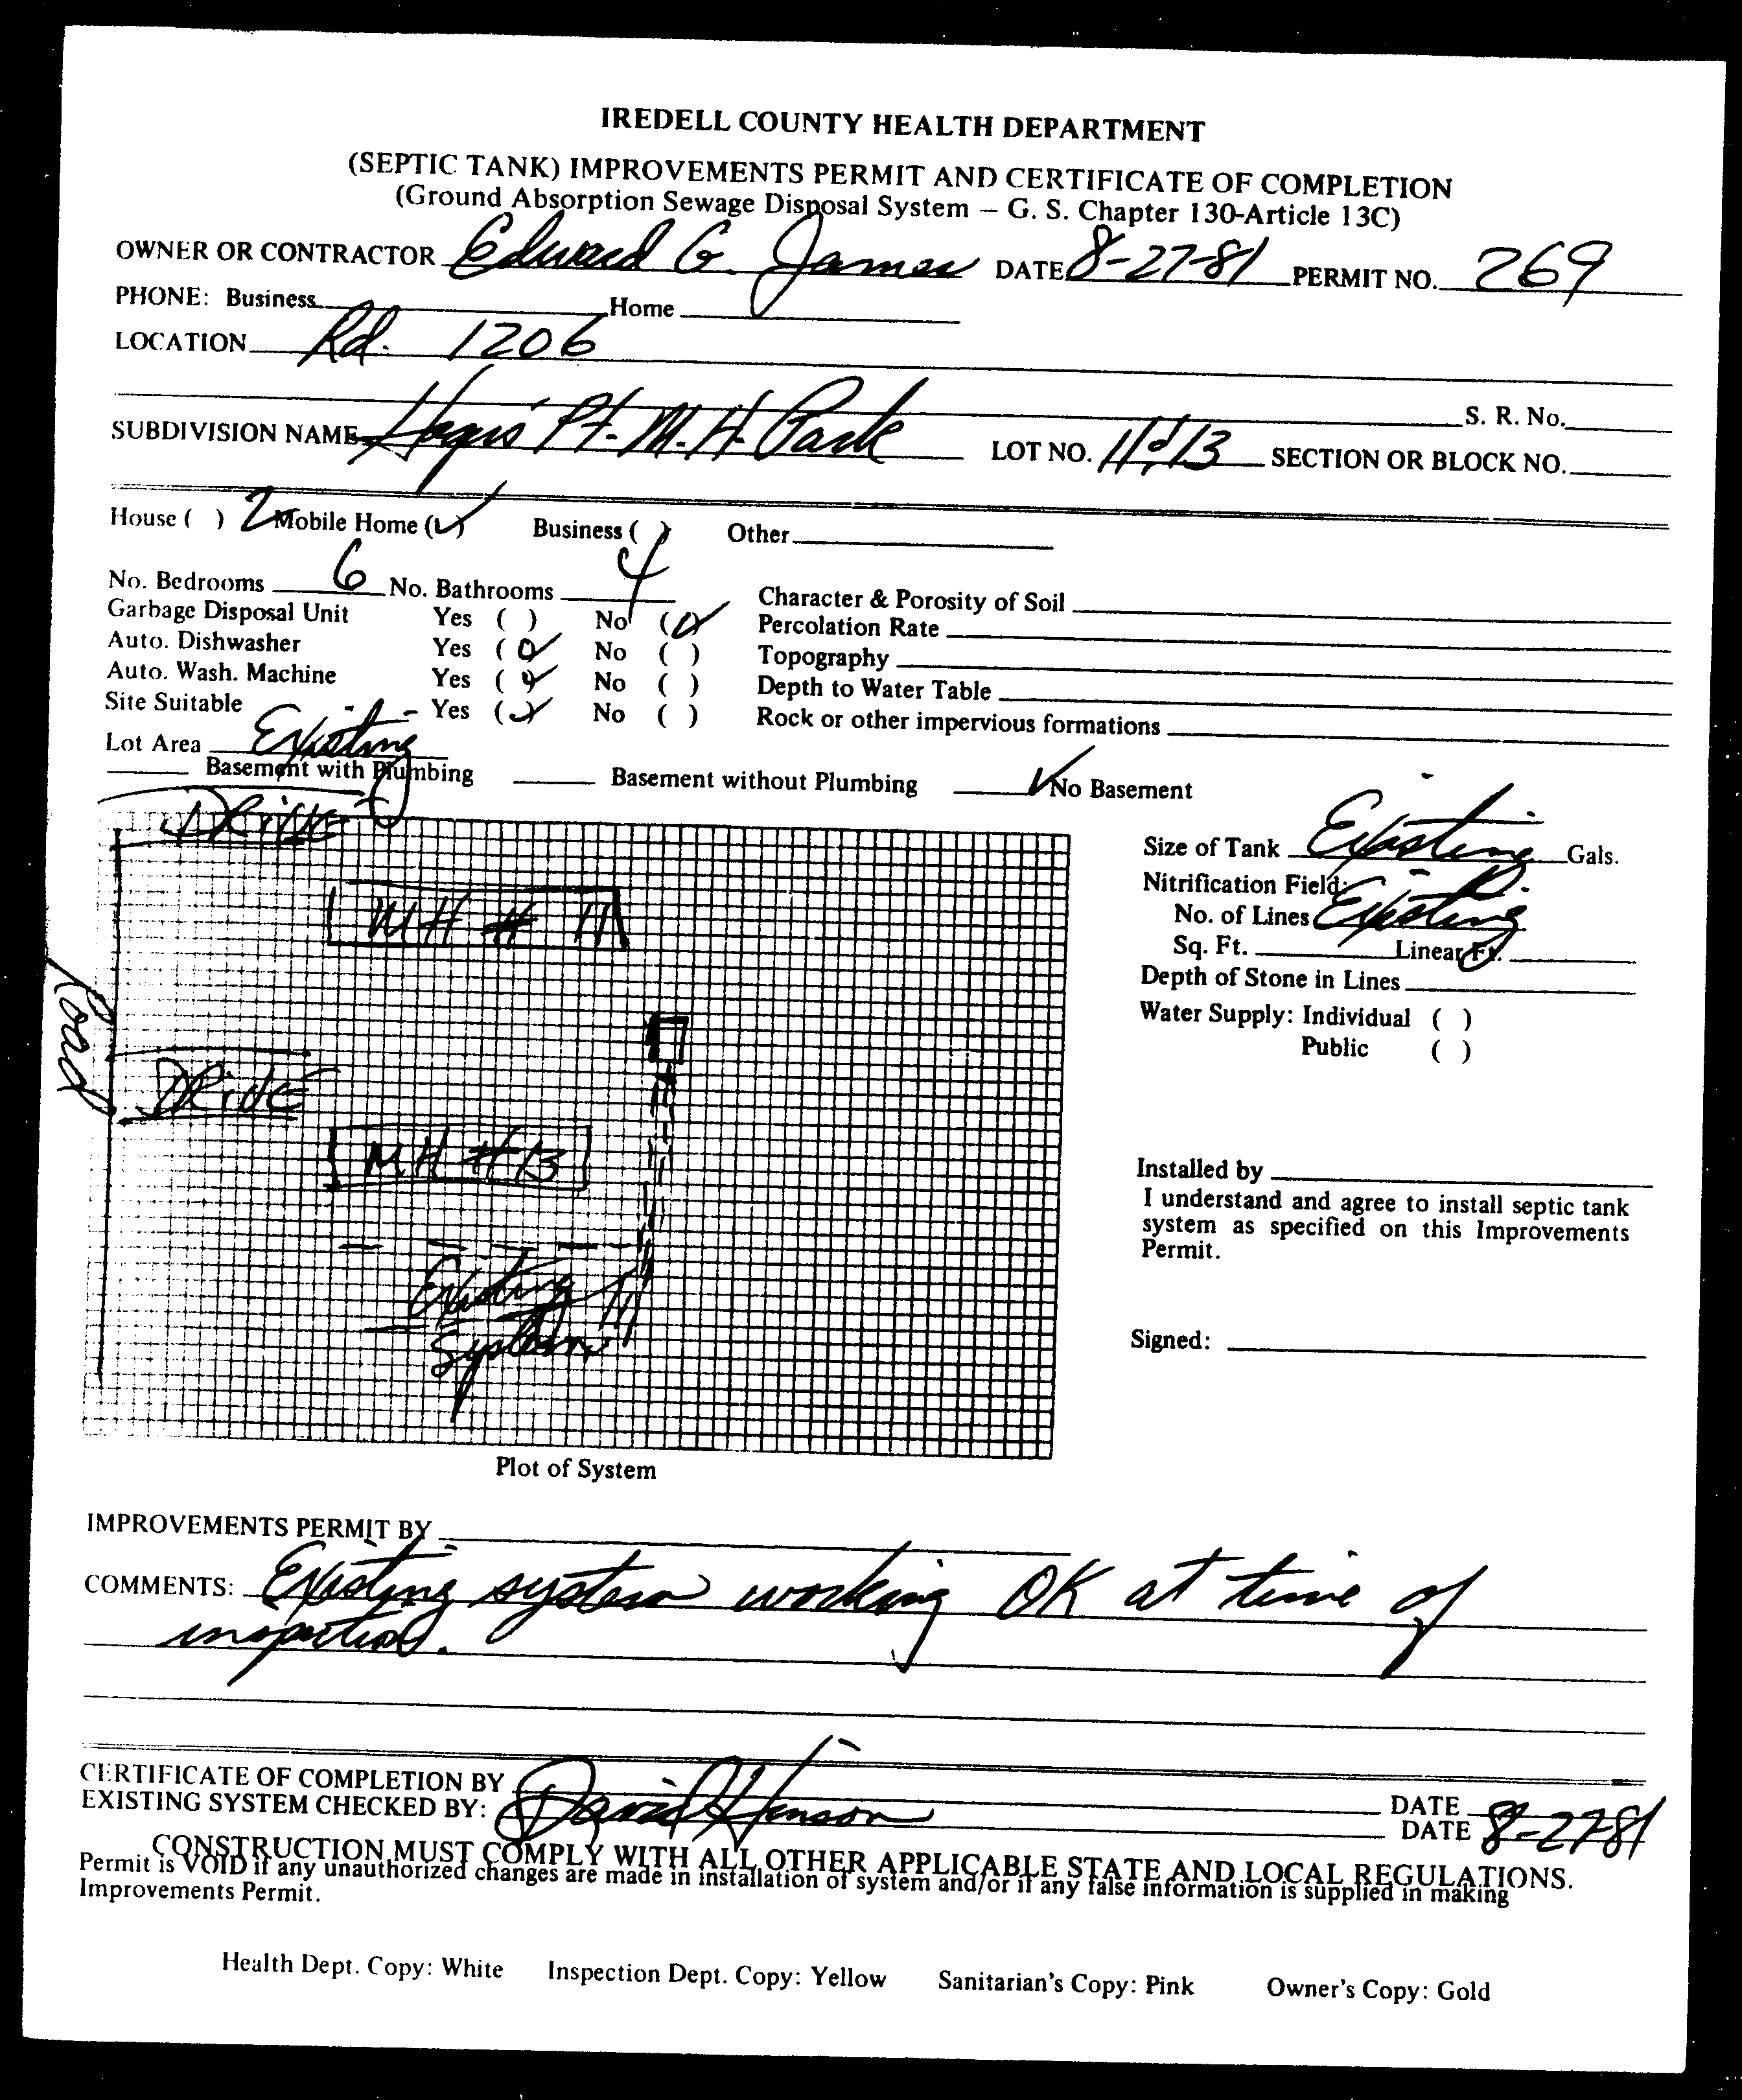 IREDELL COUNTY HEALTH DEPARTMENT
(SEPTIC TANK) IMPROVEMENTS PERMIT AND CERTIFICATE OF COMPLETION
(Ground Absorption Sewage Disposal System – G. S. Chapter 130-Article 13C)
OWNER OR CONTRACTOR Edward G. James DATE 8-27-81 PERMIT NO. 269
PHONE: Business Home
LOCATION Rd. 1206
S. R. No.
SUBDIVISION NAME Pt. M. H. Park LOT NO. 11 & 13 SECTION OR BLOCK NO.
House ( ) 2 Mobile Home (✓) Business ( ) Other
No. Bedrooms 6 No. Bathrooms 4 Character & Porosity of Soil
Garbage Disposal Unit Yes ( ) No (✓) Percolation Rate
Auto. Dishwasher Yes (✓) No ( ) Topography
Auto. Wash. Machine Yes (✓) No ( ) Depth to Water Table
Site Suitable Yes (✓) No ( ) Rock or other impervious formations
Lot Area Existing
Basement with Plumbing Basement without Plumbing ✓ No Basement
Drive
MH # 11
Road
Drive
MH # 13
Existing
System
Plot of System
Size of Tank Existing Gals.
Nitrification Field:
No. of Lines Existing
Sq. Ft. Linear Ft.
Depth of Stone in Lines
Water Supply: Individual ( )
Public ( )
Installed by
I understand and agree to install septic tank
system as specified on this Improvements
Permit.
Signed:
IMPROVEMENTS PERMIT BY
COMMENTS: Existing system working OK at time of
inspection.
CERTIFICATE OF COMPLETION BY DATE
EXISTING SYSTEM CHECKED BY: David Henson DATE 8-27-81
CONSTRUCTION MUST COMPLY WITH ALL OTHER APPLICABLE STATE AND LOCAL REGULATIONS.
Permit is VOID if any unauthorized changes are made in installation of system and/or if any false information is supplied in making
Improvements Permit.
Health Dept. Copy: White Inspection Dept. Copy: Yellow Sanitarian's Copy: Pink Owner's Copy: Gold